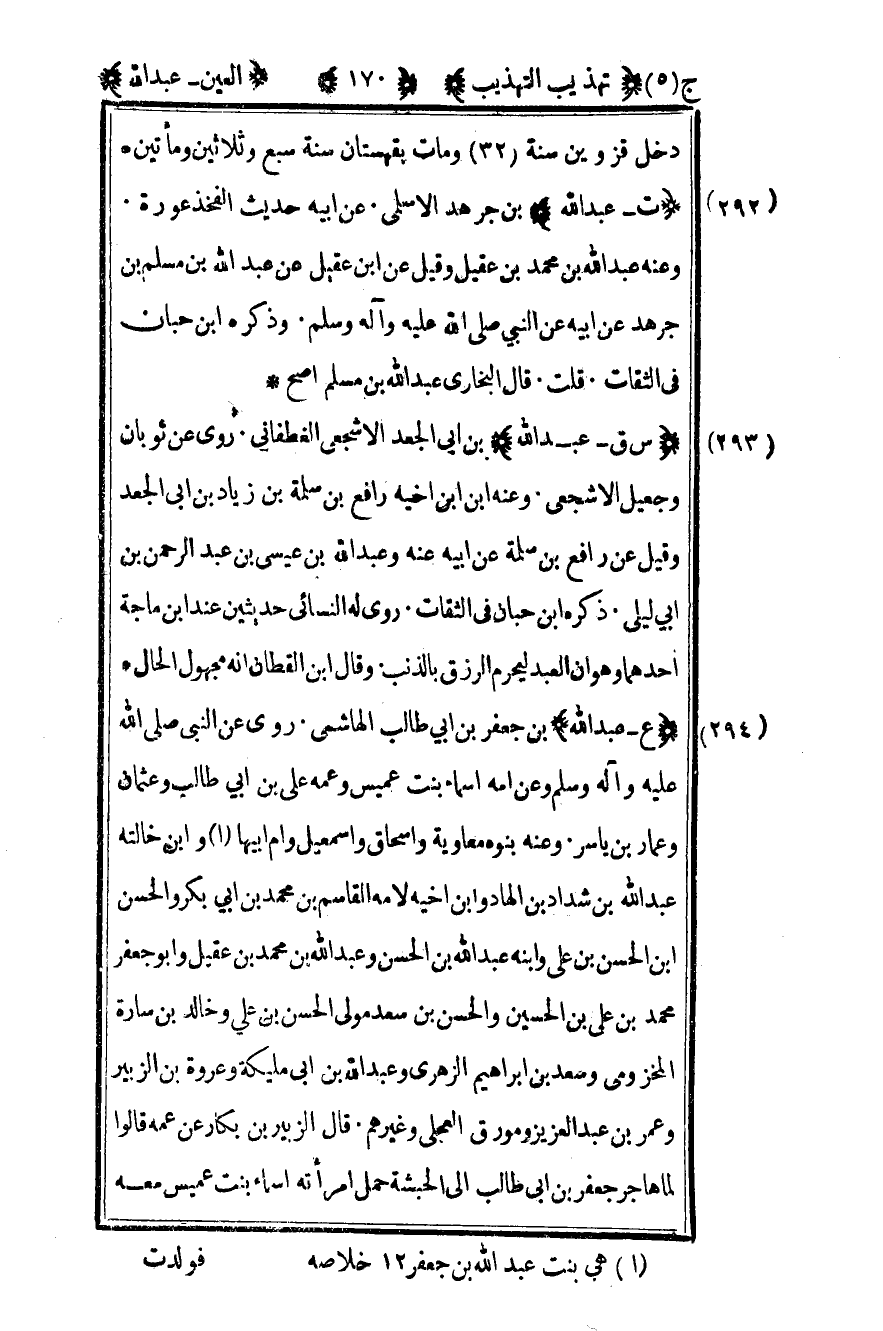 ج (٥) ﴿ تهذيب التهذيب ﴾ ﴿ ١٧٠ ﴾ ﴿ العين ـ عبدالله ﴾
دخل قزوين سنة (٣٢) ومات بقهستان سنة سبع وثلاثين ومأتين *
(٢٩٢) ﴿ ت ـ عبدالله ﴾ بن جرهد الاسلمى · عن ابيه حديث الفخذ عورة ·
وعنه عبدالله بن محمد بن عقيل وقيل عن ابن عقيل عن عبد الله بن مسلم بن
جرهد عن ابيه عن النبي صلى الله عليه وآله وسلم · وذكره ابن حبان
فى الثقات · قلت · قال البخارى عبدالله بن مسلم اصح *
(٢٩٣) ﴿ س ق ـ عبـدالله ﴾ بن ابي الجعد الاشجعى الغطفاني · روى عن ثوبان
وجعيل الاشجعى · وعنه ابن ابن اخيه رافع بن سلمة بن زياد بن ابى الجعد
وقيل عن رافع بن سلمة عن ابيه عنه وعبدالله بن عيسى بن عبد الرحمن بن
ابي ليلى · ذكره ابن حبان فى الثقات · روى له النسائى حديثين عند ابن ماجة
احدهما وهو ان العبد ليحرم الرزق بالذنب · وقال ابن القطان انه مجهول الحال *
(٢٩٤) ﴿ ع ـ عبدالله ﴾ بن جعفر بن ابي طالب الهاشمى · روى عن النبى صلى الله
عليه وآله وسلم وعن امه اسماء بنت عميس وعمه على بن ابي طالب وعثمان
وعمار بن ياسر · وعنه بنوه معاوية واسحاق واسمعيل وام ابيها (١) وابن خالته
عبدالله بن شداد بن الهاد وابن اخيه لامه القاسم بن محمد بن ابي بكر والحسن
ابن الحسن بن على وابنه عبدالله بن الحسن وعبدالله بن محمد بن عقيل وابو جعفر
محمد بن على بن الحسين والحسن بن سعد مولى الحسن بن علي وخالد بن سارة
المخزومى وسعد بن ابراهيم الزهرى وعبدالله بن ابى مليكة وعروة بن الزبير
وعمر بن عبد العزيز ومورق العجلى وغيرهم · قال الزبير بن بكار عن عمه قالوا
لما هاجر جعفر بن ابى طالب الى الحبشة حمل امرأته اسماء بنت عميس معـه
(١) هي بنت عبد الله بن جعفر ١٢ خلاصه فولدت